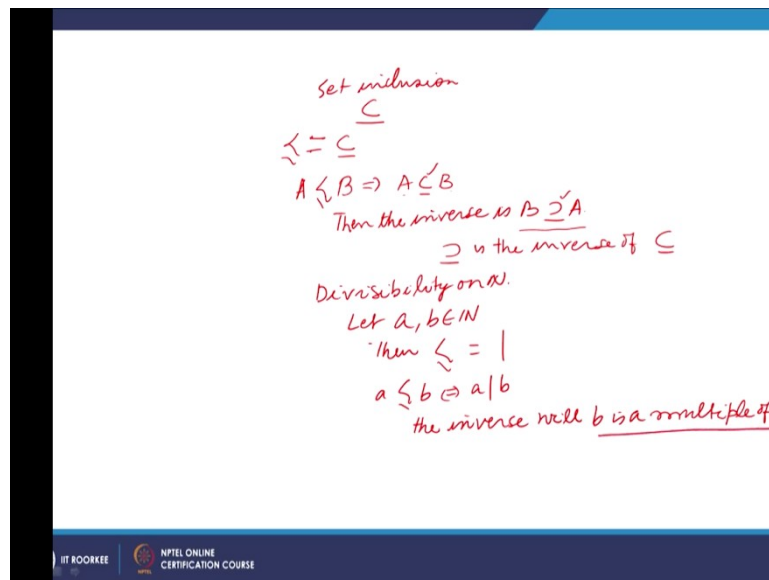 Set inclusion
⊆
≼ = ⊆
A ≼ B ⇒ A ⊆ B
Then the inverse is B ⊇ A
⊇ is the inverse of ⊆
Divisibility on N.
Let a, b ∈ N
Then ≼ = |
a ≼ b ⇔ a|b
the inverse will b is a multiple of
IIT ROORKEE
NPTEL ONLINE
CERTIFICATION COURSE
NPTEL